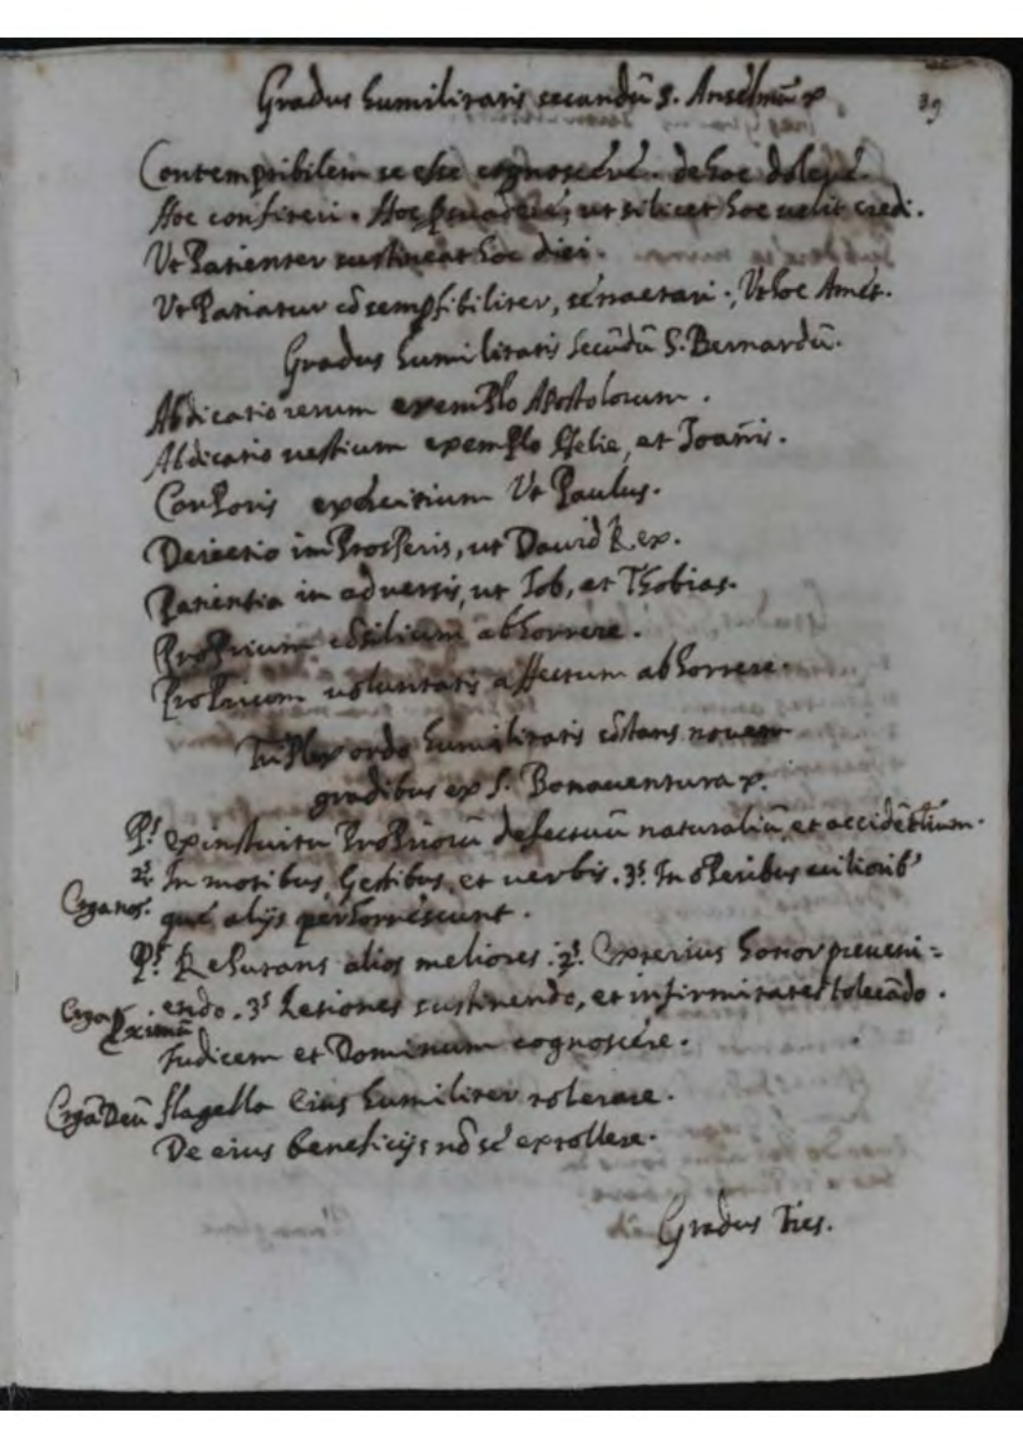 39
Gradus humilitatis secundũ S. Anselmũ
Contemptibilem se esse cognoscere. de hoc dolere.
Hoc confiteri. Hoc psuadere, ut silicet hoc uelit credi.
Ut Patienter sustineat hoc dici.
Ut Patiatur cõtemptibiliter, se tractari. Ut hoc Amet.
Gradus humilitatis secũdũ S. Bernardũ.
Abdicatio rerum exemplo Apostolorum.
Abdicatio uestium exemplo Helie, et Joañis.
Corporis exercitium Ut Paulus.
Deiectio in Prosperis, ut Dauid Rex.
Patientia in aduersis, ut Job, et Thobias.
Proprium cõsilium abhorrere.
Proprium uoluntatis affectum abhorrere.
Triplex ordo humilitatis cõstans nouem
gradibus ex S. Bonauentura
Pˢ ex instuitu Propriorũ defectuũ naturaliũ et accidẽtium.
2ˢ In motibus, Gestibus, et uerbis. 3ˢ In operibus uilioribˀ
Erga nos. que alijs perhorrescunt.
Pˢ Reputans alios meliores. 2ˢ. Exterius honor preueni=
Erga endo. 3ˢ Lesiones sustinendo, et infirmitates tolerãdo.
Pximũ
Judicem et Dominum cognoscere.
Ergã Deũ flagella Eius humiliter tolerare.
De eius beneficijs nõ se extollere.
Gradus Tres.